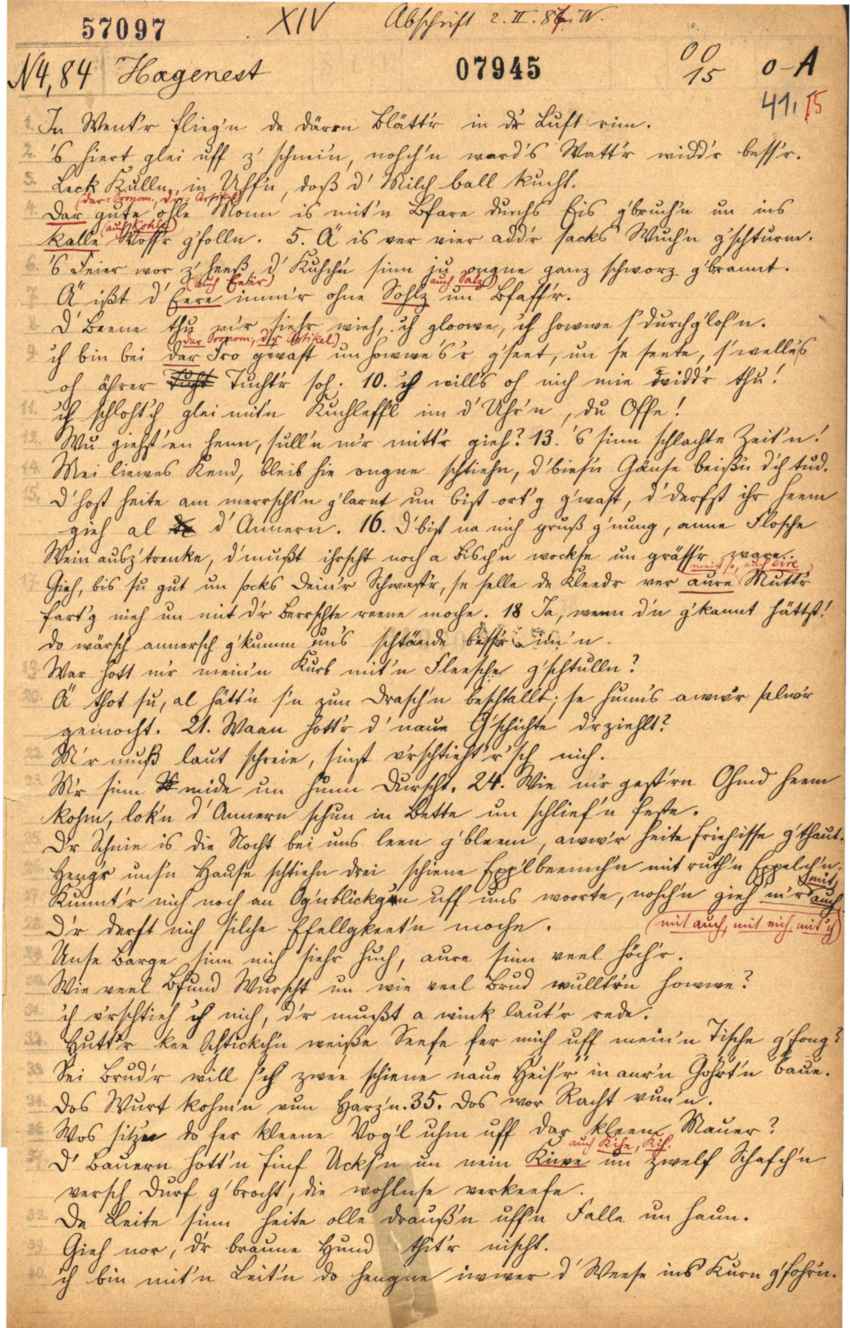 57097 XIV Abschrift 2. II. 87. W.
N4,84 Hagenest 07945 00 15 o-A
41, 15
1. In Went'r flieg'n de därrn Blätt'r in d'r Luft rim.
2. 's hiert glei uff z' schnein, nohch'n ward's Watt'r widd'r bess'r.
3. Leck Kulln, in Uff'n, doß d' Milch ball kucht.
(dar: Pronom, d'r: Artikel)
4. Dar gute ohle Monn is mit'n Pfare durchs Eis g'bruch'n un ins
(auch kohle)
kalle Woss'r g'folln. 5. Ä is ver vier add'r sacks Wuch'n g'schturm.
6. 's Feier wor z' heeß d' Kuch'n sinn ju ongne ganz schworz g'brannt.
(auch Eeier) auch Salz
7. Ä ißt d' Eere imm'r ohne Sohlz un Pfaff'r.
8. D' Beene thu m'r siehr wieh, ich gloowe, ich howwe s' durchg'lof'n.
dar Pronom, d'r Artikel
9. ich bin bei der Fro gewast un howwe's 'r g'seet, un se seete, s' welle's
oh ährer Tucht'r soh. 10. ich will's oh nich mie widd'r thu!
11. ich schloht'ch glei mit'n Kuchleffl im d' Uhr'n, du Offe!
12. Wu giehst'en henn, sull'n m'r mitt'r gieh? 13. 's sinn schlachte Zeit'n!
14. Mei liewes Kend, bleib hie ongne schtiehn, d' bies'n Gänse beiß'n d'ch tud.
15. D' host heite am merrscht'n g'larnt un bist ort'g g'wast, d' derfst ihr heem
gieh al d' Annern. 16. D' bist na nich gruß g'nung, anne Flosche
Wein ausz'trenke, d' mußt ihrscht noch a bisch'n wockse un gräss'r ware.
17. Gieh, bis su gut un socks Dein'r Schwest'r, se selle de Kleed'r ver aure Mutt'r
fart'g nieh un mit d'r Berrschte reene moche. 18 Ja, wenn d'n g'kannt hättst!
do wärsch annersch g'kumm un's schtände bess'r im'n.
19. War hott m'r mein'n Kurb mit'n Fleesche g'schtulln?
20. Ä thot su, al hätt'n s'n zun Drasch'n beschtallt; se hunn's aww'r salw'r
gemocht. 21. Waan hott'r d' naue G'schichte d'rziehlt?
22. M'r muß laut schreie, sinst v'rschtieht'r'sch nich.
23. M'r sinn mide un hunn Durscht. 24. Wie m'r gest'rn Ohmd heem
kohm, lok'n d' Annern schun in Bette un schlief'n feste.
25. D'r Schnie is die Nocht bei uns leen g'bleem, aww'r heite friehisse g'thaut.
26. Heng'r uns'n Hause schtiehn drei schiene Epp'lbeemch'n mit ruth'n Eppelch'n.
27. Kunnt'r nich noch an Og'nblickg'n uff uns woorte, nohch'n gieh m'r mit auch
28. D'r derft nich siche Effellgkeet'n moche. (mit auch, mit eich. mit'ch)
29. Unse Barge sinn nich siehr huch, aure sinn veel höch'r.
30. Wie veel Pfund Wurscht un wie veel Brud wullt'rn howwe?
31. ich v'rschtieh ich nich, d'r mußt a wink laut'r rede.
32. Hutt'r kee Schtickch'n weiße Seefe fer mich uff mein'n Tische g'fong?
33. Sei Brud'r will s'ch zwee schiene naue Heis'r in aur'n Gohrt'n baue.
34. Dos Wurt kohm'n vun Harz'n. 35. Dos wor Racht vun'n.
36. Wos sitzn do fer kleene Vög'l uhm uff dar kleene Mauer?
auch Kihe, Kih
37. D' Bauern hott'n finf Ucks'n un nein Kiwe un zwelf Schafch'n
versch Durf g'brocht, die wohlnse verkeefe.
38. De Leite sinn heite olle drauß'n uff'n Falle un haun.
39. Gieh nor, d'r braune Hund thit'r nischt.
40. ich bin mit'n Leit'n do hengne iwwer d' Weese ins Kurn g'fohr'n.